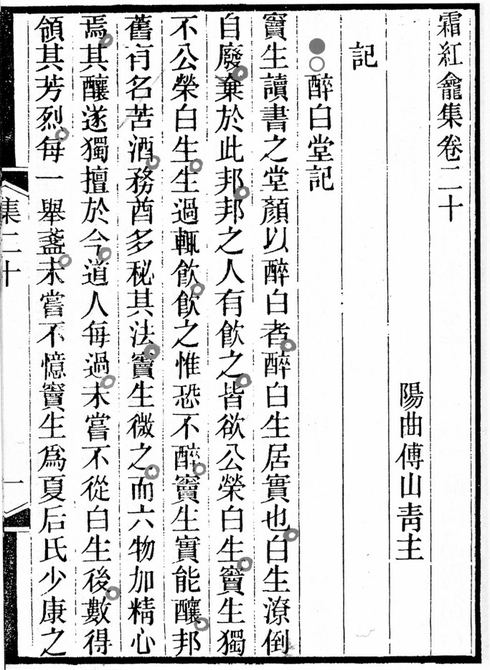 霜紅龕集卷二十
陽曲傅山青主
記
醉白堂記
竇生讀書之堂顏以醉白者醉白生居實也白生潦倒
自廢棄於此邦邦之人有飲之皆欲公榮白生竇生獨
不公榮白生生過輒飲飲之惟恐不醉竇生實能釀邦
舊有名苦酒務酋多秘其法竇生微之而六物加精心
焉其釀遂獨擅於今道人每過未嘗不從白生後數得
領其芳烈每一舉盞未嘗不憶竇生為夏后氏少康之
集二十
一